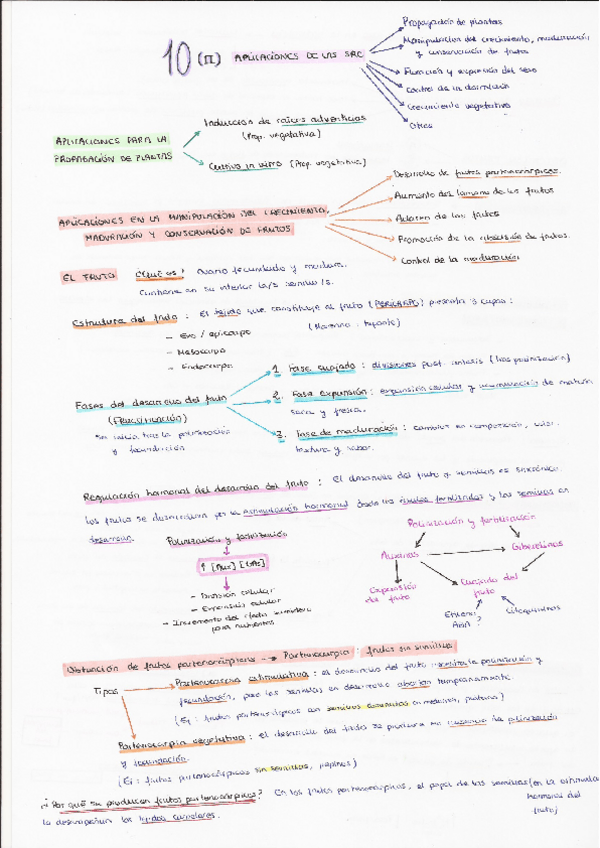 10 (II) APLICACIONES DE LAS SRC
Propagación de plantas
Manipulación del crecimiento, maduración
y conservación de frutos
Floración y expresión del sexo
Control de la dormición
Crecimiento vegetativo
Otras
APLICACIONES PARA LA
PROPAGACIÓN DE PLANTAS
Inducción de raíces adventicias
(Prop. vegetativa)
Cultivo in vitro (Prop. vegetativa)
APLICACIONES EN LA MANIPULACIÓN DEL CRECIMIENTO,
MADURACIÓN Y CONSERVACIÓN DE FRUTOS
Desarrollo de frutos partenocárpicos.
Aumento del tamaño de los frutos
Aclareo de los frutos
Promoción de la abscisión de frutos.
Control de la maduración
EL FRUTO
¿Qué es? Ovario fecundado y maduro.
Contiene en su interior la/s semilla/s.
Estructura del fruto: El tejido que constituye al fruto (PERICARPO) presenta 3 capas:
- Exo / epicarpo
- Mesocarpo
- Endocarpo
Fases del desarrollo del fruto
(FRUCTIFICACIÓN)
Se inicia tras la polinización
y fecundación
1. Fase cuajado: divisiones post. antesis (tras polinización)
2. Fase expansión: expansión celular y acumulación de materia
seca y fresca.
3. Fase de maduración: cambios en composición, color,
textura y sabor.
Regulación hormonal del desarrollo del fruto: El desarrollo del fruto y semillas es sincrónico.
Los frutos se desarrollan por el estimulación hormonal desde los óvulos fertilizados y las semillas en
desarrollo.
Polinización y fertilización
↑ [Aux] [GAs]
- División celular
- Expansión celular
- Incremento del efecto sumidero
para nutrientes
Polinización y fertilización
Auxinas
Giberelinas
Expansión
de fruto
Cuajado del
fruto
Etileno
ABA ?
Citoquininas
Obtención de frutos partenocárpicos → Partenocarpia: frutos sin semillas
Tipos
Partenocarpia estimulativa: el desarrollo del fruto necesita la polinización y
fecundación, pero las semillas en desarrollo abortan tempranamente.
(Ej: frutos partenocárpicos con semillas abortadas
Partenocarpia vegetativa: el desarrollo del fruto se produce en ausencia de polinización
y fecundación.
(Ej: frutos partenocárpicos sin semillas, pepinos)
¿Por qué se producen frutos partenocárpicos? En los frutos partenocárpicos, el papel de las semillas (en la estimulación
hormonal del
fruto)
lo desempeñan los tejidos carpelares.